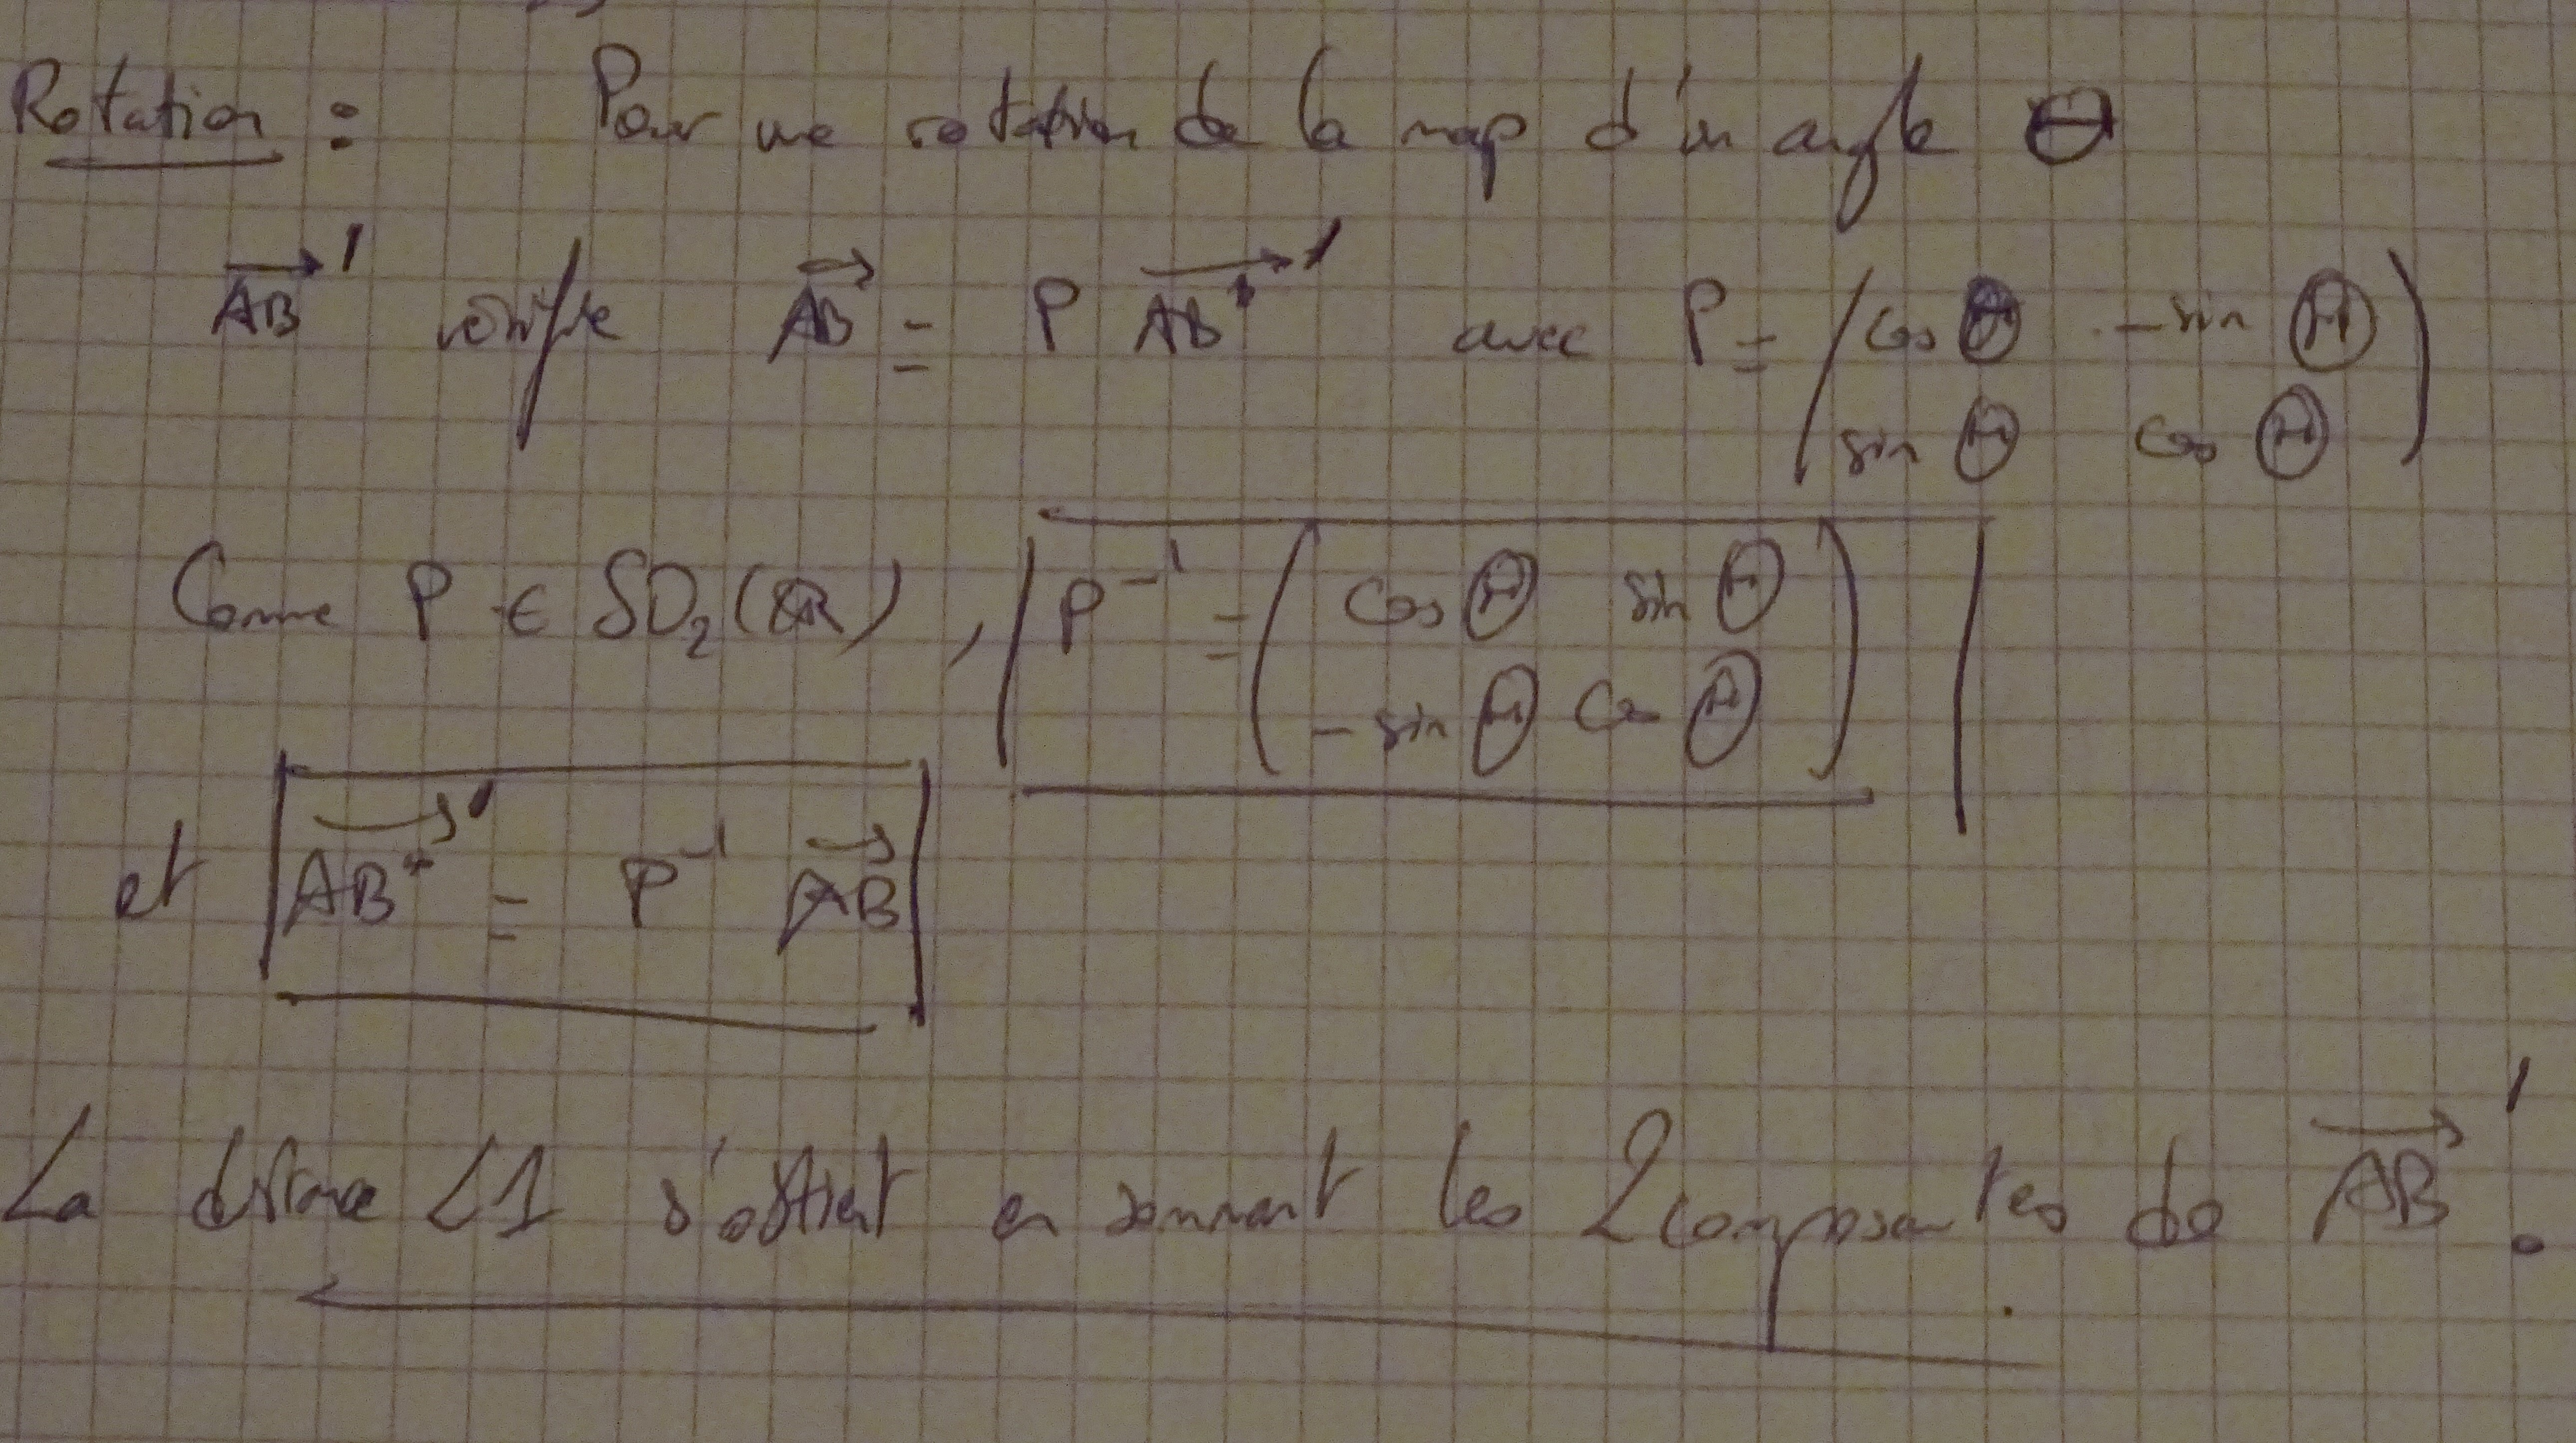 Rotation : Pour une rotation de la map d'un angle Θ
AB' vérifie AB = P AB' avec P = ( cos Θ - sin Θ
sin Θ cos Θ )
Comme P ∈ SO₂(ℝ), P⁻¹ = ( cos Θ sin Θ
- sin Θ cos Θ )
et AB' = P⁻¹ AB
La distance L1 s'obtient en sommant les 2 composantes de AB'.